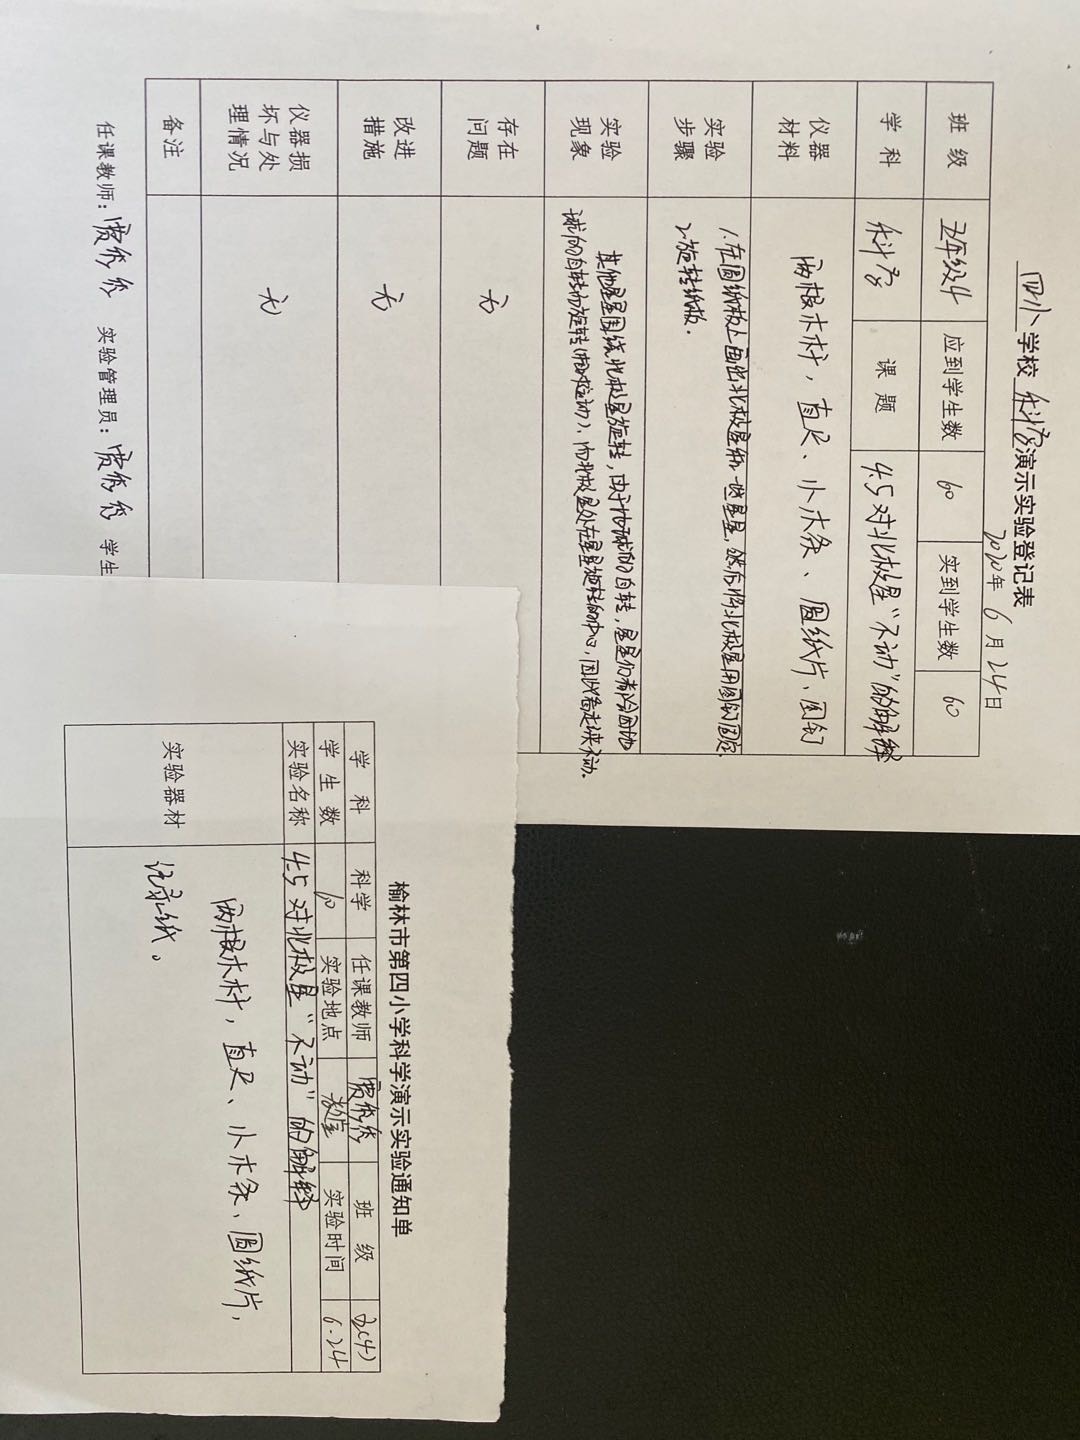 四小学校科学演示实验登记表
2020年6月24日
班级 五年级4 应到学生数 60 实到学生数 60
学科 科学 课题 4.5对北极星“不动”的解释
仪器材料 两根木材，直尺、小木条、圆纸片、图钉
实验步骤 1.在圆纸板上画出北极星和一些星星，然后将北极星用图钉固定.
2.旋转纸板.
实验现象 其他星星围绕北极星旋转，由于地球的自转，星星仿若沿因地
球的自转而旋转(相对运动)，而北极星处在星星旋转的中心，因此看起来不动.
存在问题 无
改进措施 无
仪器损坏与处理情况 无
备注
任课教师: 贾秀秀 实验管理员: 贾秀秀 学生
榆林市第四小学科学演示实验通知单
学科 科学 任课教师 贾秀秀 班级 五(4)
学生数 60 实验地点 教室 实验时间 6.24
实验名称 4.5对北极星“不动”的解释
实验器材 两根木材，直尺、小木条、圆纸片，
记录纸。